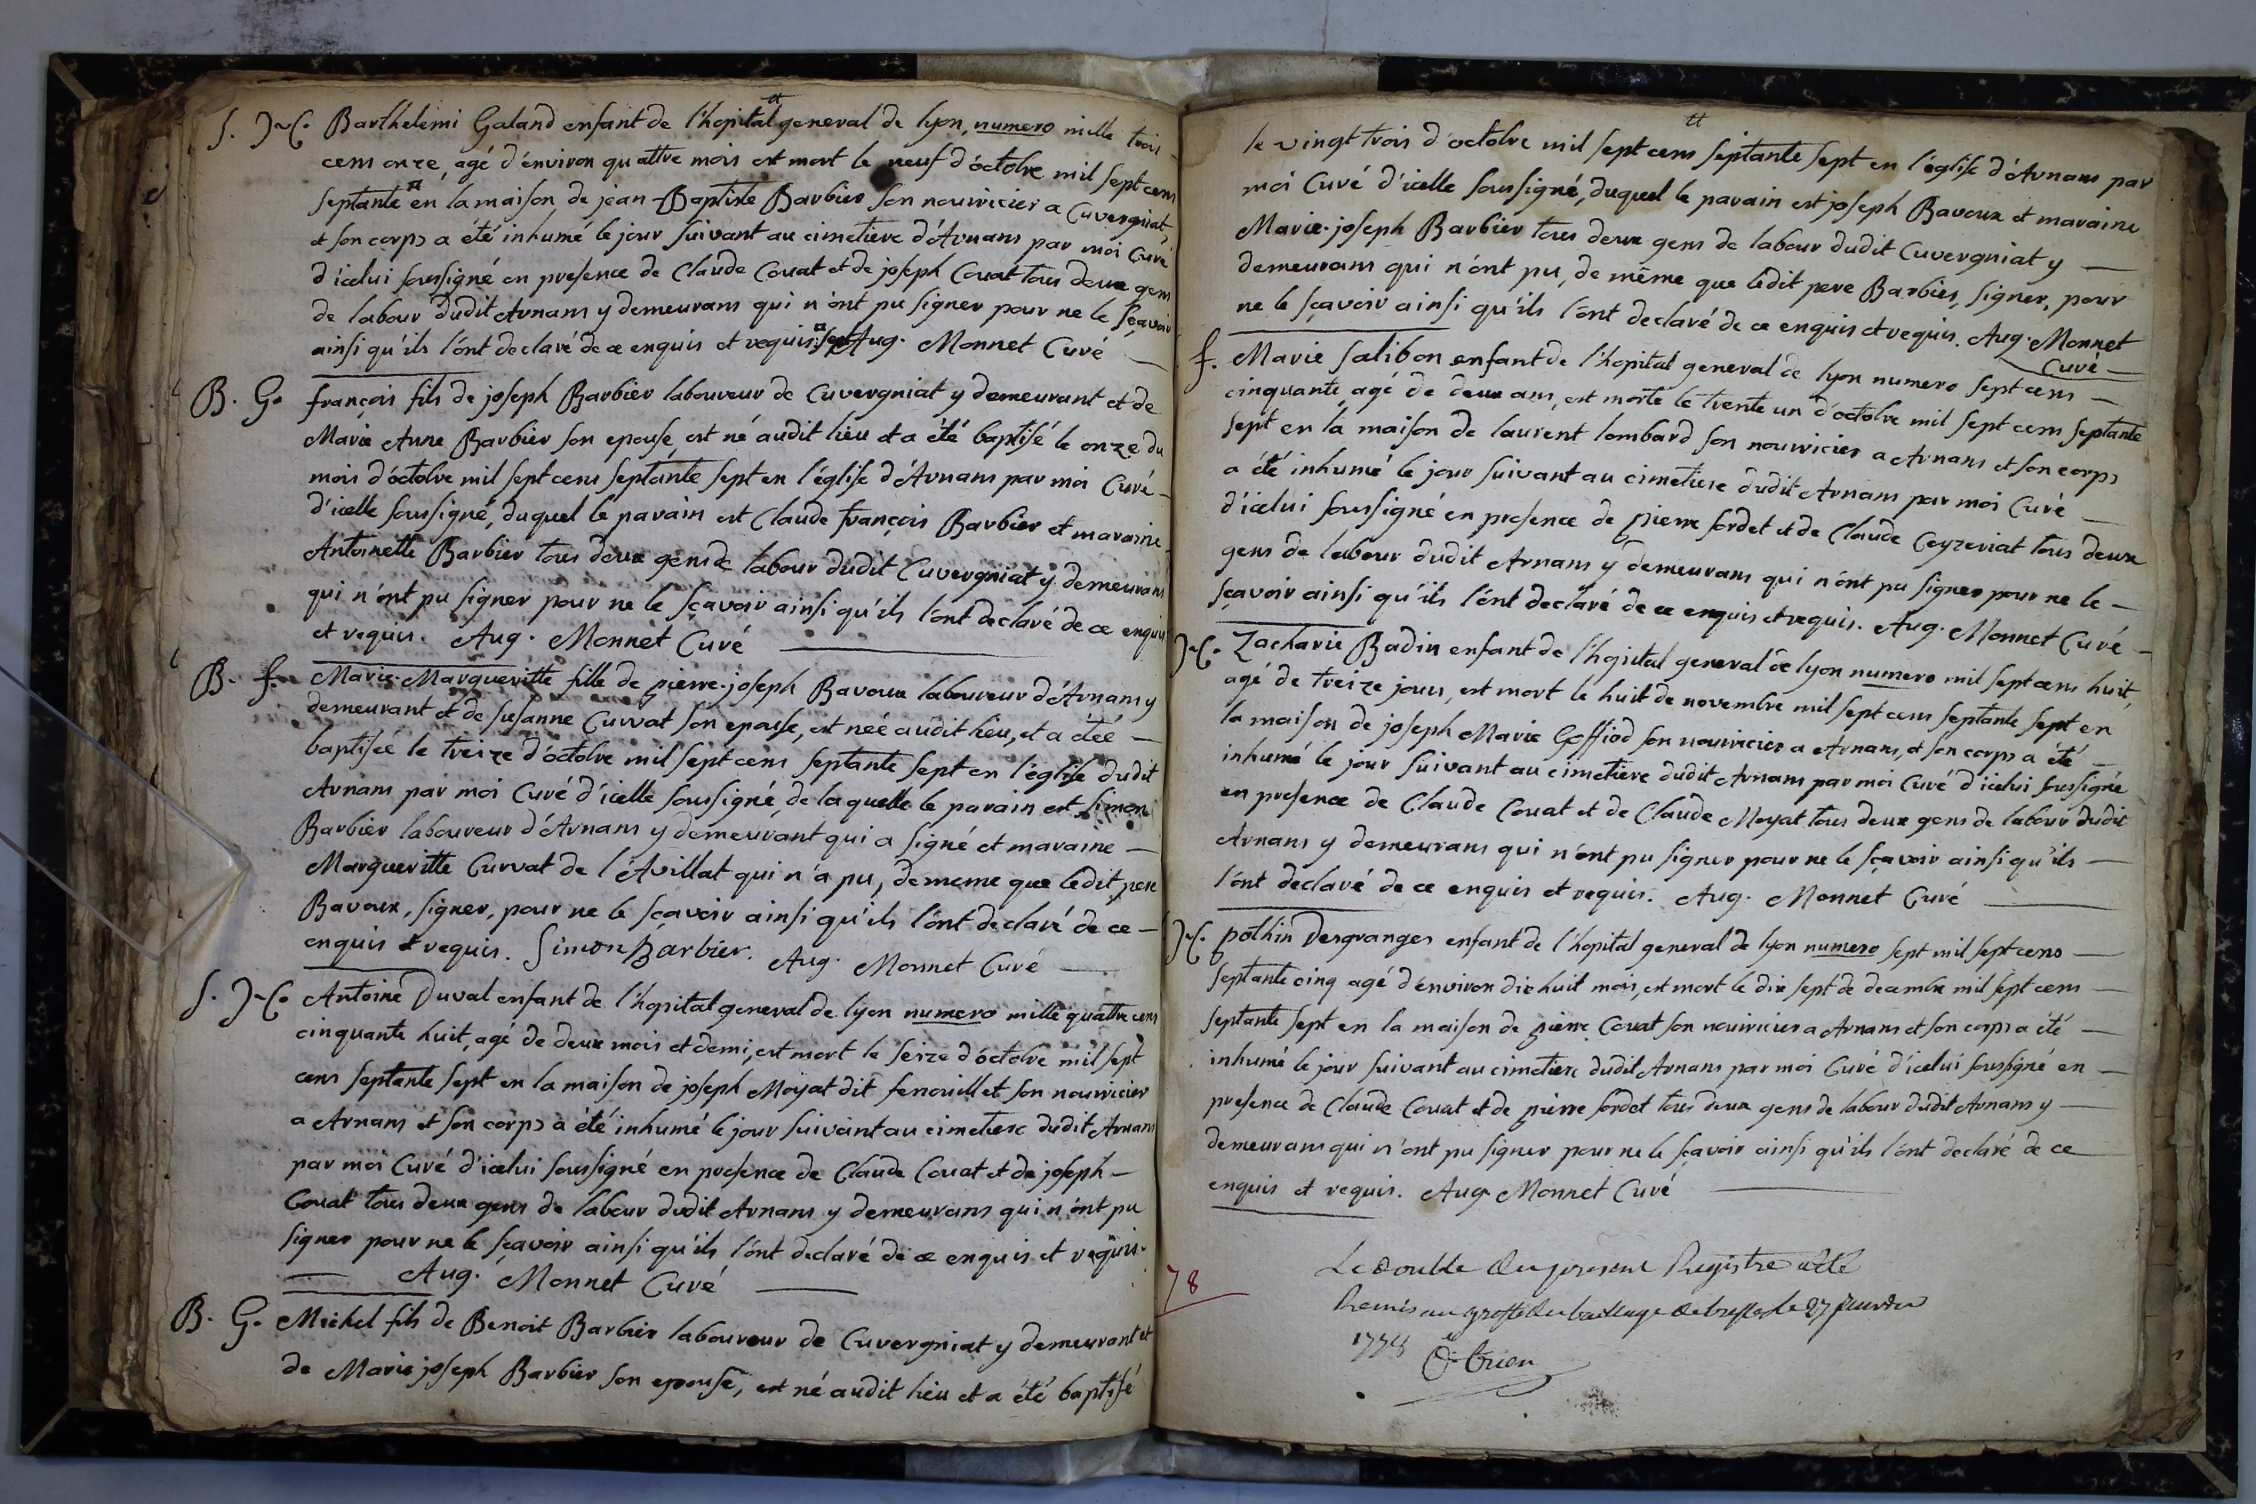 Barthelemi Galand enfant de l'hopital general de lyon, numero mille trois
cens onze, agé d'énviron quattre mois est mort le neuf d'óctobre mil sept cens
septante ¤ en la maison de jean-Baptiste Barbier son nourricier a Cuvergniat,
et son corps a été inhumé le jour suivant au cimetiere d'Arnans par moi Curé
d'icelui soussigné en presence de Claude Couat et de joseph Couat tous deux gens
de labour dudit Arnans y demeurans qui n'ónt pu signer pour ne le sçavoir
ainsi qu'ils l'ónt declaré de ce enquis et requis. ¤ sept Aug. Monnet Curé
B. G. françois fils de joseph Barbier laboureur de Cuvergniat y demeurant et de
Marie Anne Barbier son epouse, est né audit lieu et a été baptisé le onze du
mois d'óctobre mil sept cens septante sept en l'église d'Arnans par moi Curé
d'icelle soussigné, duquel le parain est Claude françois Barbier et maraine
Antoinette Barbier tous deux gens de labour dudit Cuvergniat y demeurans
qui n'ónt pu signer pour ne le sçavoir ainsi qu'ils l'ont declaré de ce enquis
et requis. Aug. Monnet Curé
B. f. Marie-Margueritte fille de pierre-joseph Bavoux laboureur d'Arnans y
demeurant et de susanne Curvat son epouse, est neé audit lieu, et a éteé
baptiseé le treize d'óctobre mil sept cens septante sept en l'église dudit
Arnans par moi Curé d'icelle soussigné, de laquelle le parain est simon
Barbier laboureur d'Arnans y demeurant qui a signé et maraine
Margueritte Curvat de l'Avillat qui n'a pu, de meme que ledit pere
Bavoux, signer, pour ne le sçavoir ainsi qu'ils l'ónt declaré de ce
enquis et requis. Simon Barbier. Aug. Monnet Curé
Antoine Duval enfant de l'hopital general de lyon numero mille quattre cens
cinquante huit, agé de deux mois et demi, est mort le seize d'óctobre mil sept
cens septante sept en la maison de joseph Moyat dit fenouillet son nourricier
a Arnans et son corps a été inhumé le jour suivant au cimetiere dudit Arnans
par moi Curé d'icelui soussigné en presence de Claude Couat et de joseph
Couat tous deux gens de labour dudit Arnans y demeurans qui n'ónt pu
signer pour ne le sçavoir ainsi qu'ils l'ónt declaré de ce enquis et requis.
Aug. Monnet Curé
B. G. Michel fils de Benoit Barbier laboureur de Cuvergniat y demeurant et
de Marie joseph Barbier son epouse, est né audit lieu et a été baptisé
le vingt trois d'octobre mil sept cens septante sept en l'église d'Arnans par
moi Curé d'icelle soussigné, duquel le parain est joseph Bavoux et maraine
Marie-joseph Barbier tous deux gens de labour dudit Cuvergniat y
demeurans qui n'ónt pu, de même que ledit pere Barbier, signer, pour
ne le sçavoir ainsi qu'ils l'ont declaré de ce enquis et requis. Aug. Monnet
Curé
f. Marie salibon enfant de l'hopital general de lyon numero sept cens
cinquante, agé de deux ans, est morte le trente un d'octobre mil sept cens septante
sept en la maison de laurent lombard son nourricier a Arnans et son corps
a été inhumé le jour suivant au cimetiere dudit Arnans par moi Curé
d'icelui soussigné en presence de pierre fordet et de Claude Ceyzeriat tous deux
gens de labour dudit Arnans y demeurans qui n'ónt pu signer pour ne le
sçavoir ainsi qu'ils l'ónt declaré de ce enquis et requis. Aug. Monnet Curé
Zacharie Badin enfant de l'hopital general de lyon numero mil sept cens huit,
agé de treize jours, est mort le huit de novembre mil sept cens septante sept en
la maison de joseph Marie Goffiod son nourricier a Arnans, et son corps a été
inhumé le jour suivant au cimetiere dudit Arnans par moi Curé d'icelui soussigné
en presence de Claude Couat et de Claude Moyat tous deux gens de labour dudit
Arnans y demeurans qui n'ont pu signer pour ne le sçavoir ainsi qu'ils
l'ónt declaré de ce enquis et requis. Aug. Monnet Curé
pothin Desgranges enfant de l'hopital general de lyon numero sept mil sept cens
septante cinq agé d'énviron dix huit mois, est mort le dix sept de decembre mil sept cens
septante sept en la maison de pierre Couat son nourricier a Arnans et son corps a été
inhumé le jour suivant au cimetiere dudit Arnans par moi Curé d'icelui soussigné en
presence de Claude Couat et de pierre fordet tous deux gens de labour dudit Arnans y
demeurans qui n'ont pu signer pour ne le sçavoir ainsi qu'ils l'ónt declaré de ce
enquis et requis. Aug. Monnet Curé
78
Le double du present Registre a été
Remis au greffe du bailliage de bresse le 27 janvier
1778